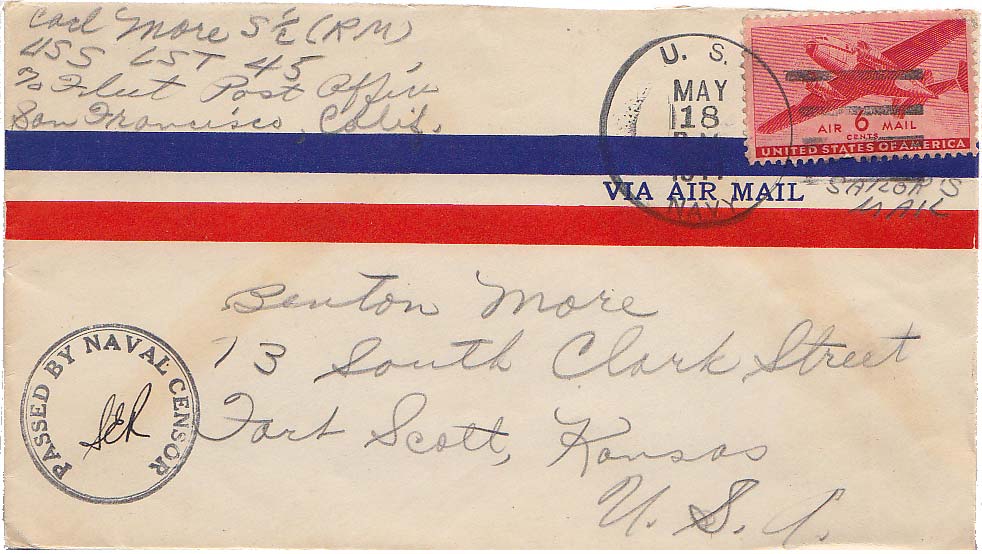 Carl More S1/C (RM)
USS LST 45
c/o Fleet Post Office
San Francisco, Calif.
U. S.
MAY
18
NAVY
AIR 6 MAIL
CENTS
UNITED STATES OF AMERICA
VIA AIR MAIL
SAILOR'S
MAIL
Benton More
13 South Clark Street
Fort Scott, Kansas
U. S. A.
PASSED BY NAVAL CENSOR